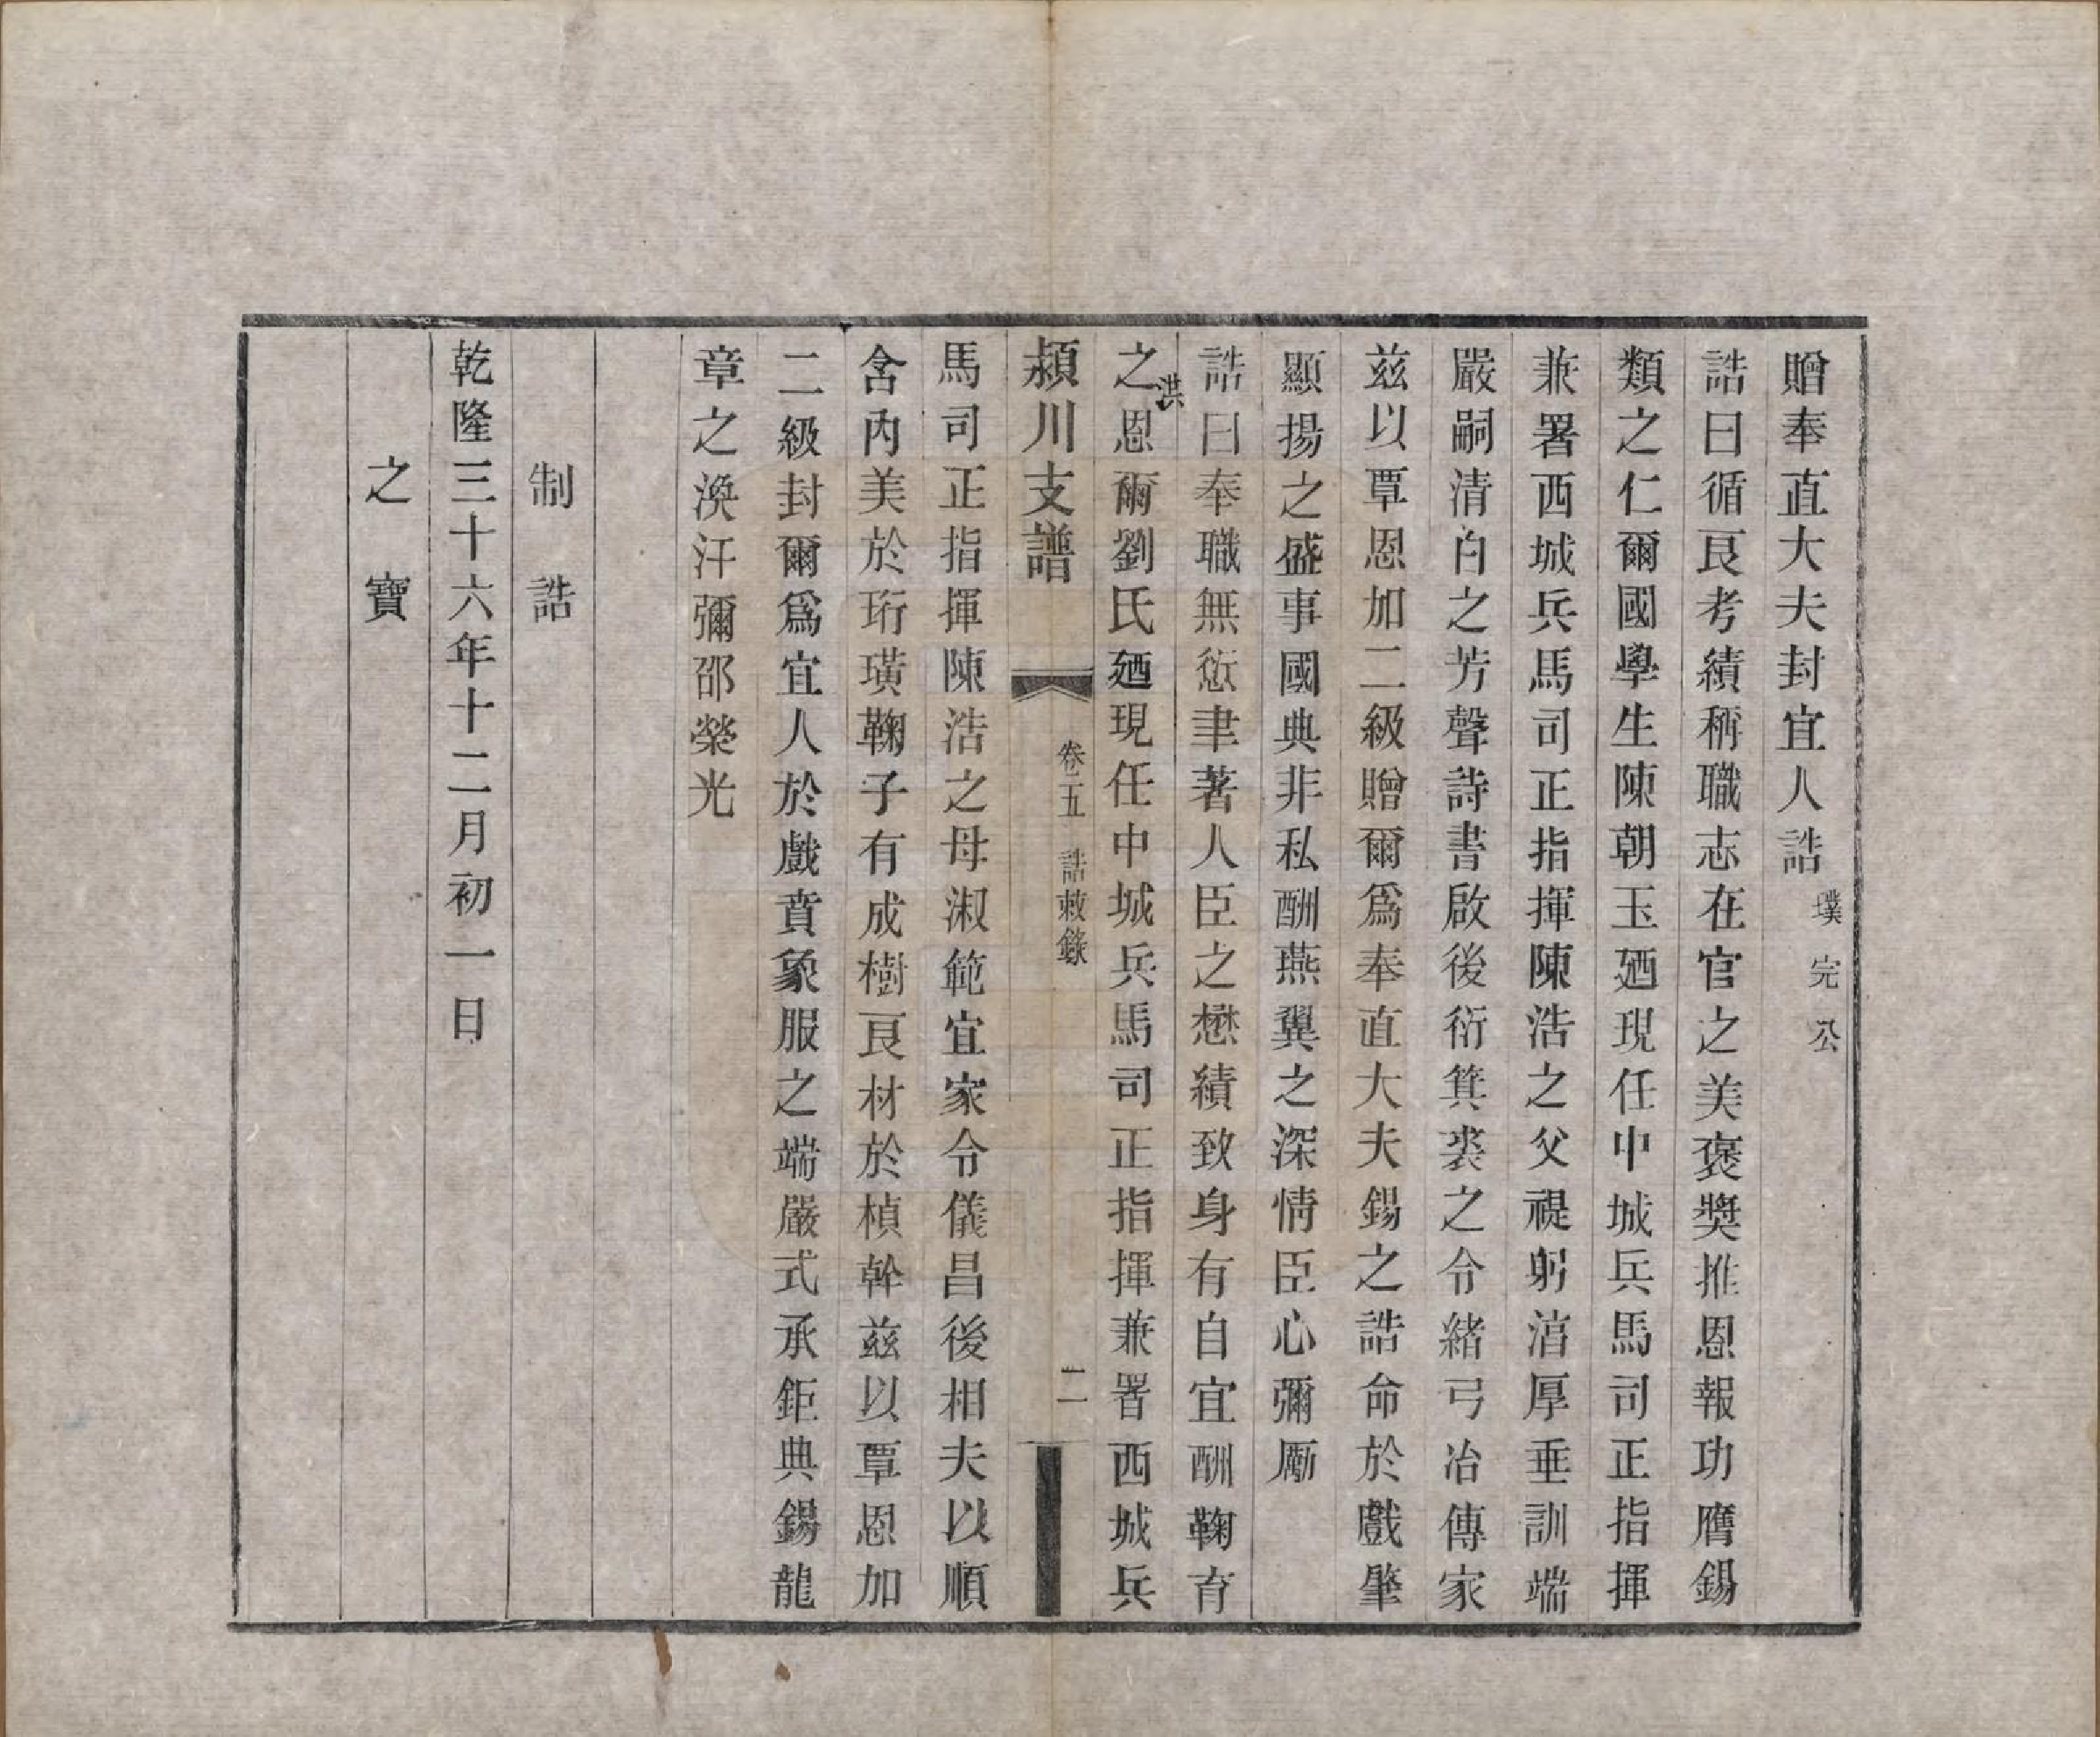 贈奉直大夫封宜人誥 璞完公
誥曰循良考績稱職志在官之美褒獎推恩報功膺錫
類之仁爾國學生陳朝玉廼現任中城兵馬司正指揮
兼署西城兵馬司正指揮陳浩之父禔躬淯厚垂訓端
嚴嗣清白之芳聲詩書啟後衍箕裘之令緒弓冶傳家
兹以覃恩加二級贈爾爲奉直大夫錫之誥命於戲肇
顯揚之盛事國典非私酬燕翼之深情臣心彌厲
誥曰奉職無愆聿著人臣之懋績致身有自宜酬鞠育
之洪恩爾劉氏廼現任中城兵馬司正指揮兼署西城兵
潁川支譜 卷五 誥敕錄 二
馬司正指揮陳浩之母淑範宜家令儀昌後相夫以順
含內美於珩璜鞠子有成樹良材於楨幹兹以覃恩加
二級封爾爲宜人於戲賁象服之端嚴式承鉅典錫龍
章之渙汗彌邵榮光
制誥
乾隆三十六年十二月初一日
之寶